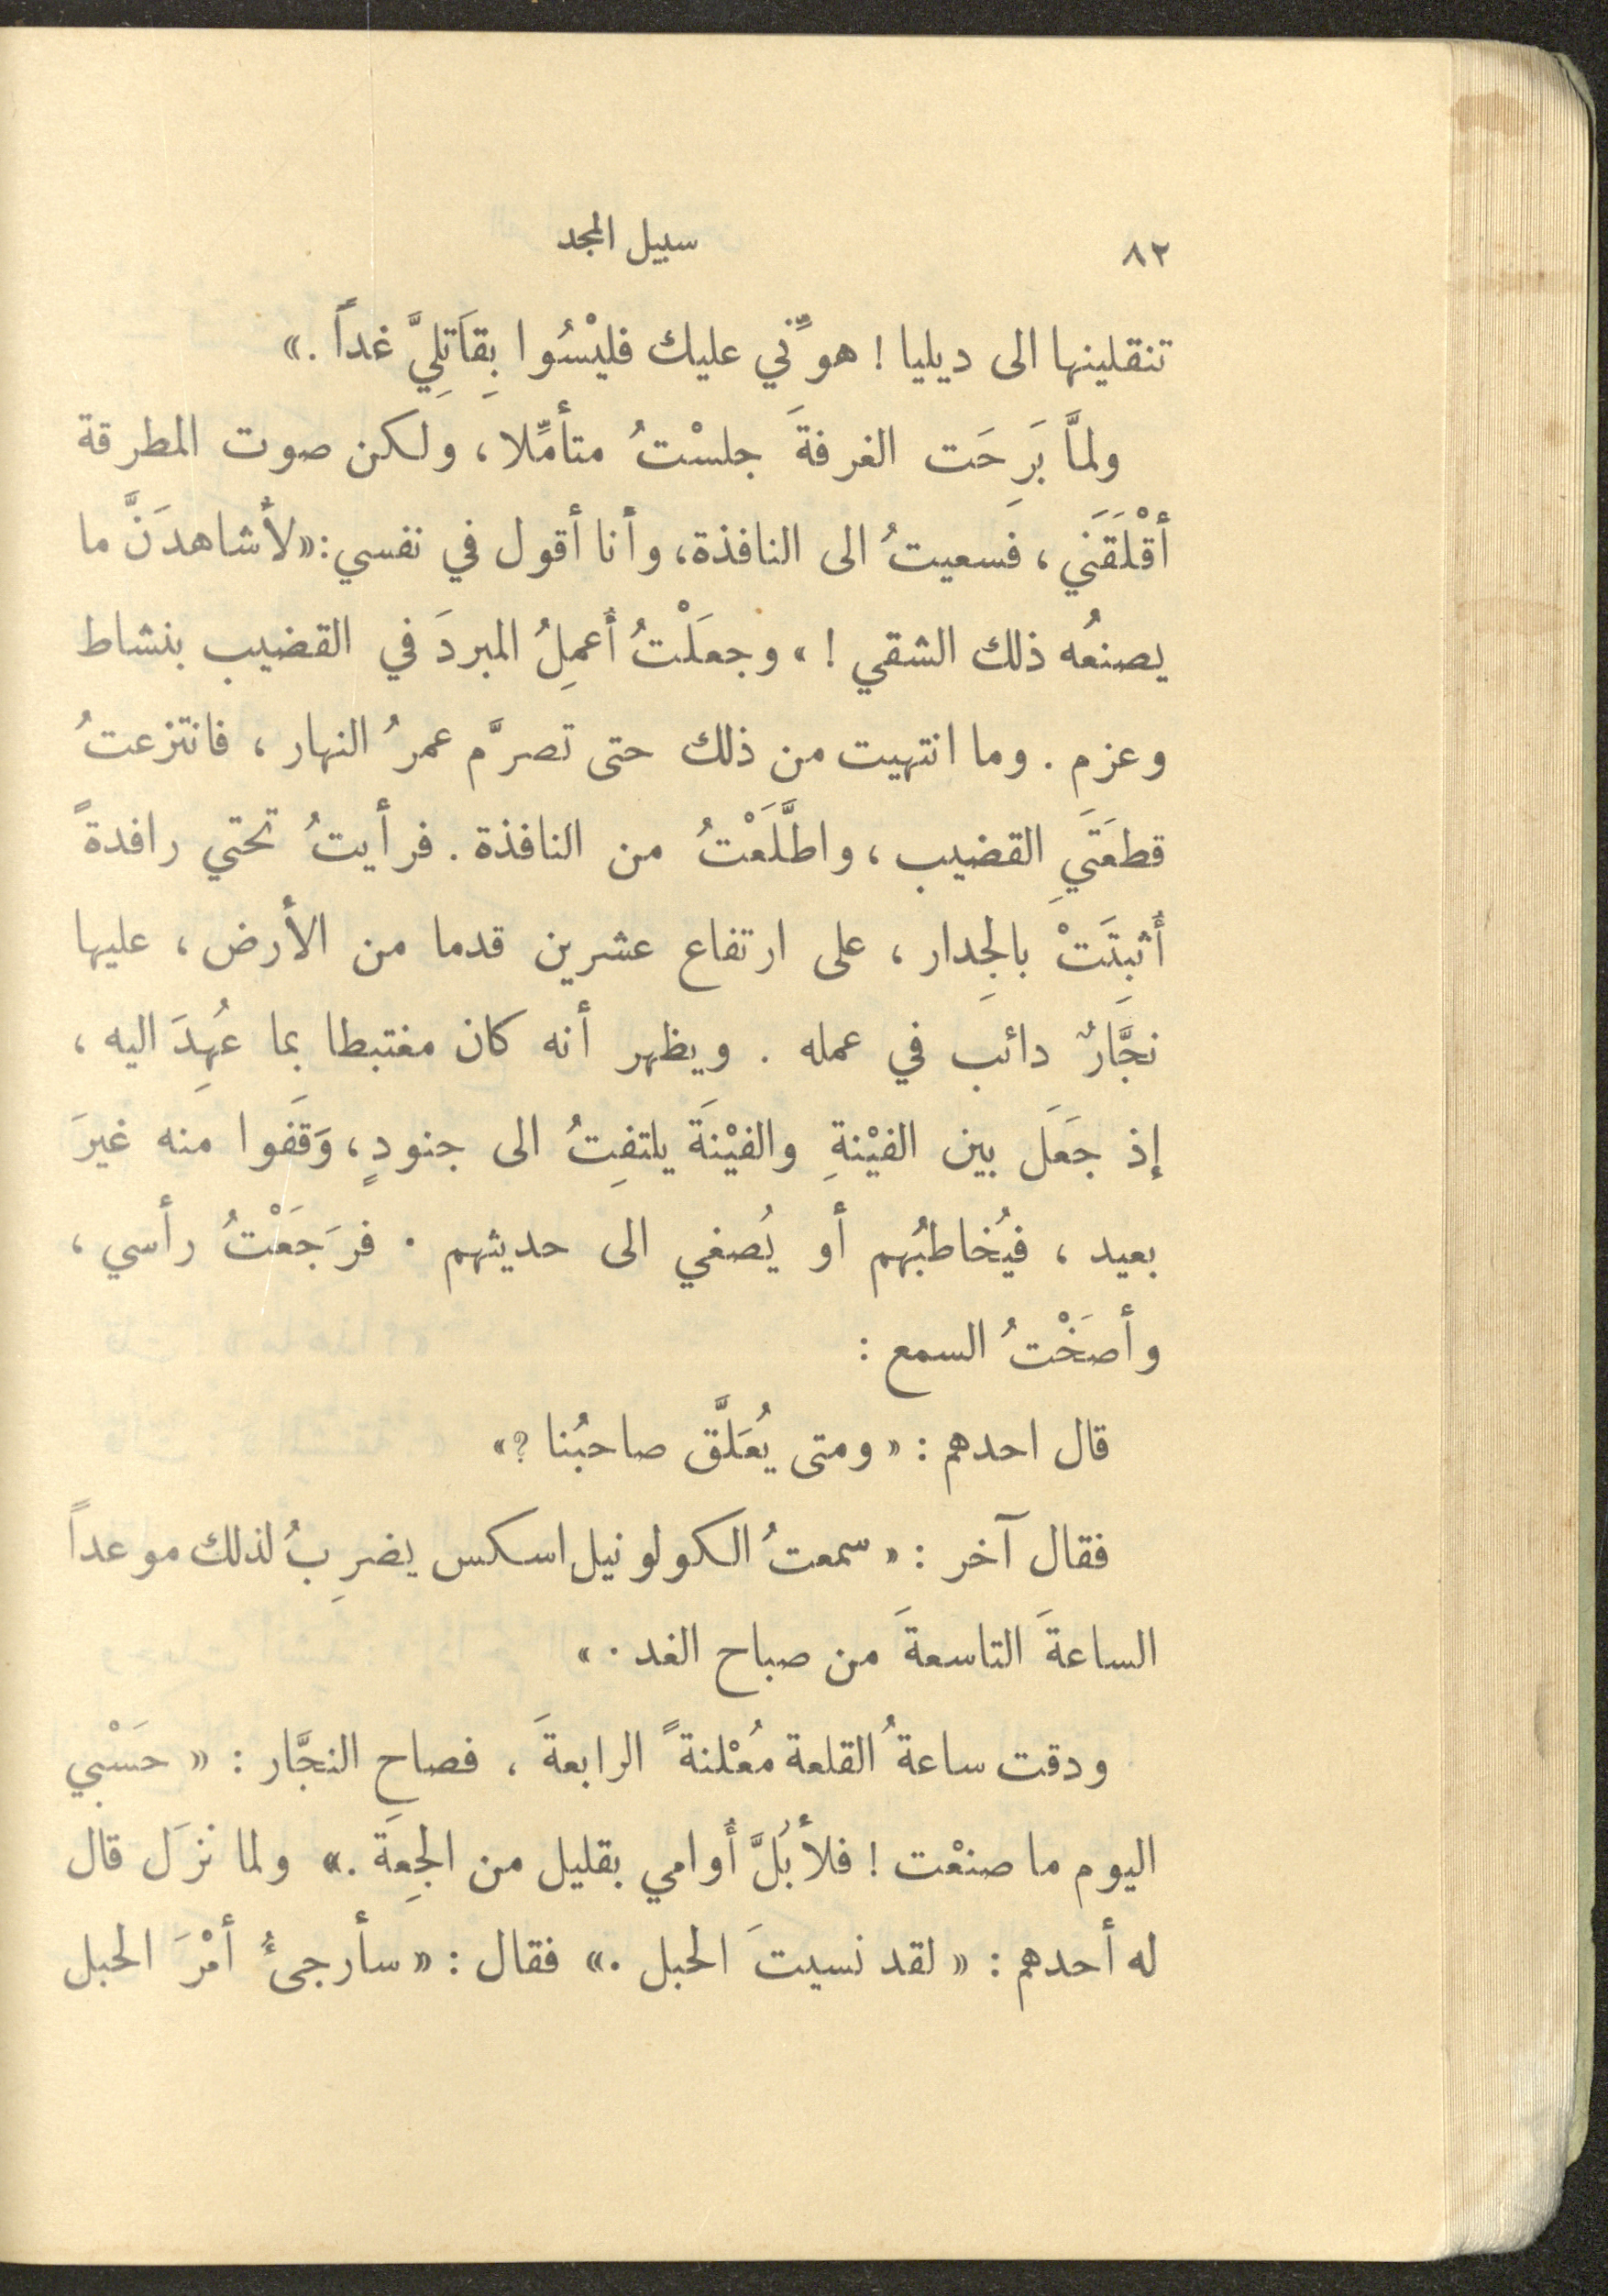 ٨٢ سبيل المجد
تنقلينها الى ديليا ! هوِّني عليك فليْسُوا بِقاَتِلِيَّ غداً .»
ولمَّا بَرِحَت الغرفةَ جلسْتُ متأمِّلا، ولكن صوت المطرقة
أقْلَقَنَي ، فسعيتُ الى النافذة، وأنا أقول في نفسي: «لأشاهدَنَّ ما
يصنعُه ذلك الشقي ! » وجعَلْتُ أُعمِلُ المبردَ في القضيب بنشاط
وعزم . وما انتهيت من ذلك حتى تصرَّم عمرُ النهار ، فانتزعتُ
قطعَتَيِ القضيب ، واطَّلَعْتُ من النافذة . فرأيتُ تحتي رافدةً
أُثبِتَتْ بالجِدار ، على ارتفاع عشرين قدما من الأرض ، عليها
نجَّارٌ دائب في عمله . ويظهر أنه كان مغتبطا بما عُهِدَ اليه ،
إذ جَعَلَ بين الفيْنةِ والفيْنَة يلتفِتُ الى جنودٍ، وَقَفوا منه غيرَ
بعيد ، فيُخاطبُهم أو يُصغي الى حديثهم . فرَجَعْتُ رأسي ،
وأصَخْتُ السمع :
قال احدهم : « ومتى يُعَلَّق صاحبُنا ؟»
فقال آخر : « سمعتُ الكولونيل اسكس يضرِبُ لذلك موعداً
الساعةَ التاسعةَ من صباح الغد . »
ودقت ساعةُ القلعة مُعْلنةً الرابعةَ ، فصاح النجَّار : « حَسْبي
اليوم ما صنعْت ! فلأبُلَّ أُوامي بقليل من الجِعَة .» ولما نزَل قال
له أحدهم : « لقد نسيتَ الحبل .» فقال : « سأرجئُ أمْرَ الحبل